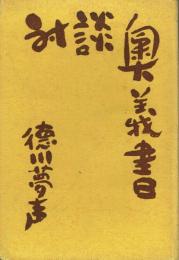 奥義書
対談
徳川夢声